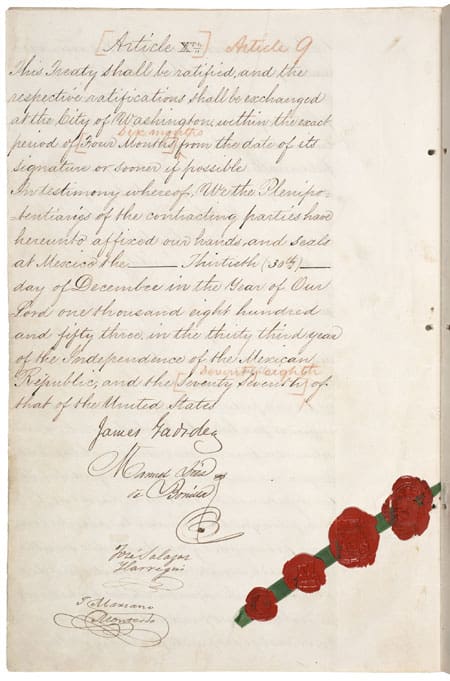 [Article ] Article 9
This Treaty shall be ratified, and the
respective ratifications shall be exchanged
at the City of Washington, within the exact
Six months
period of [Four Months] from the date of its
signature or sooner if possible
In testimony whereof, We the Plenipo-
-tentiaries of the contracting parties have
hereunto affixed our hands and seals
at Mexico the Thirtieth (30th)
day of December in the Year of Our
Lord one thousand eight hundred
and fifty three, in the thirty third year
of the Independence of the Mexican
seventy eighth
Republic, and the [seventy seventh] of
that of the United States
James Gadsden
Manuel Diez
de Bonilla
José Salazar
Ylarregui
J. Mariano
Monterde